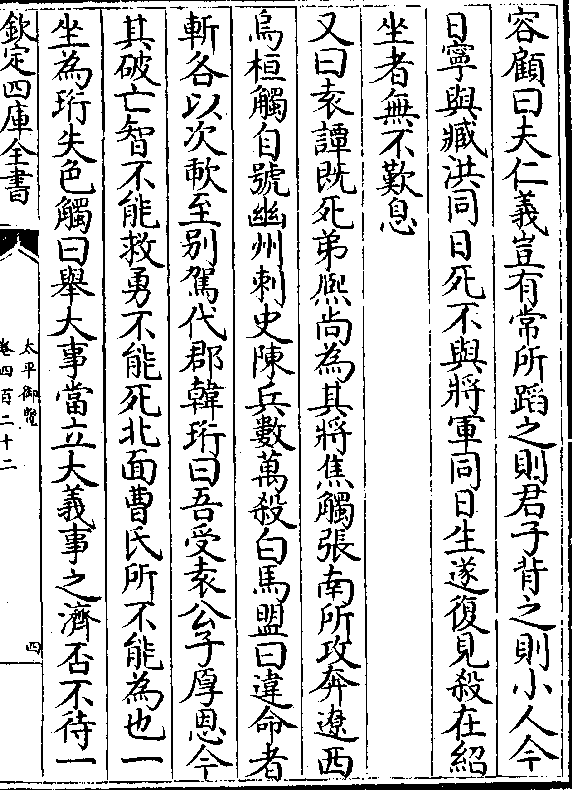 容顧曰夫仁義豈有常所蹈之則君子背之則小人今
日寧與臧洪同日死不與將軍同日生遂復見殺在紹
坐者無不歎息
又曰袁譚既死弟熈尚為其將焦觸張南所攻奔遼西
烏桓觸自號幽州刺史陳兵數萬殺白馬盟曰違命者
斬各以次歃至别駕代郡韓珩曰吾受袁公子厚恩今
其破亡智不能救勇不能死北面曹氏所不能為也一
坐為珩失色觸曰舉大事當立大義事之濟否不待一
欽定四庫全書
太平御覽
卷四百二十二
四